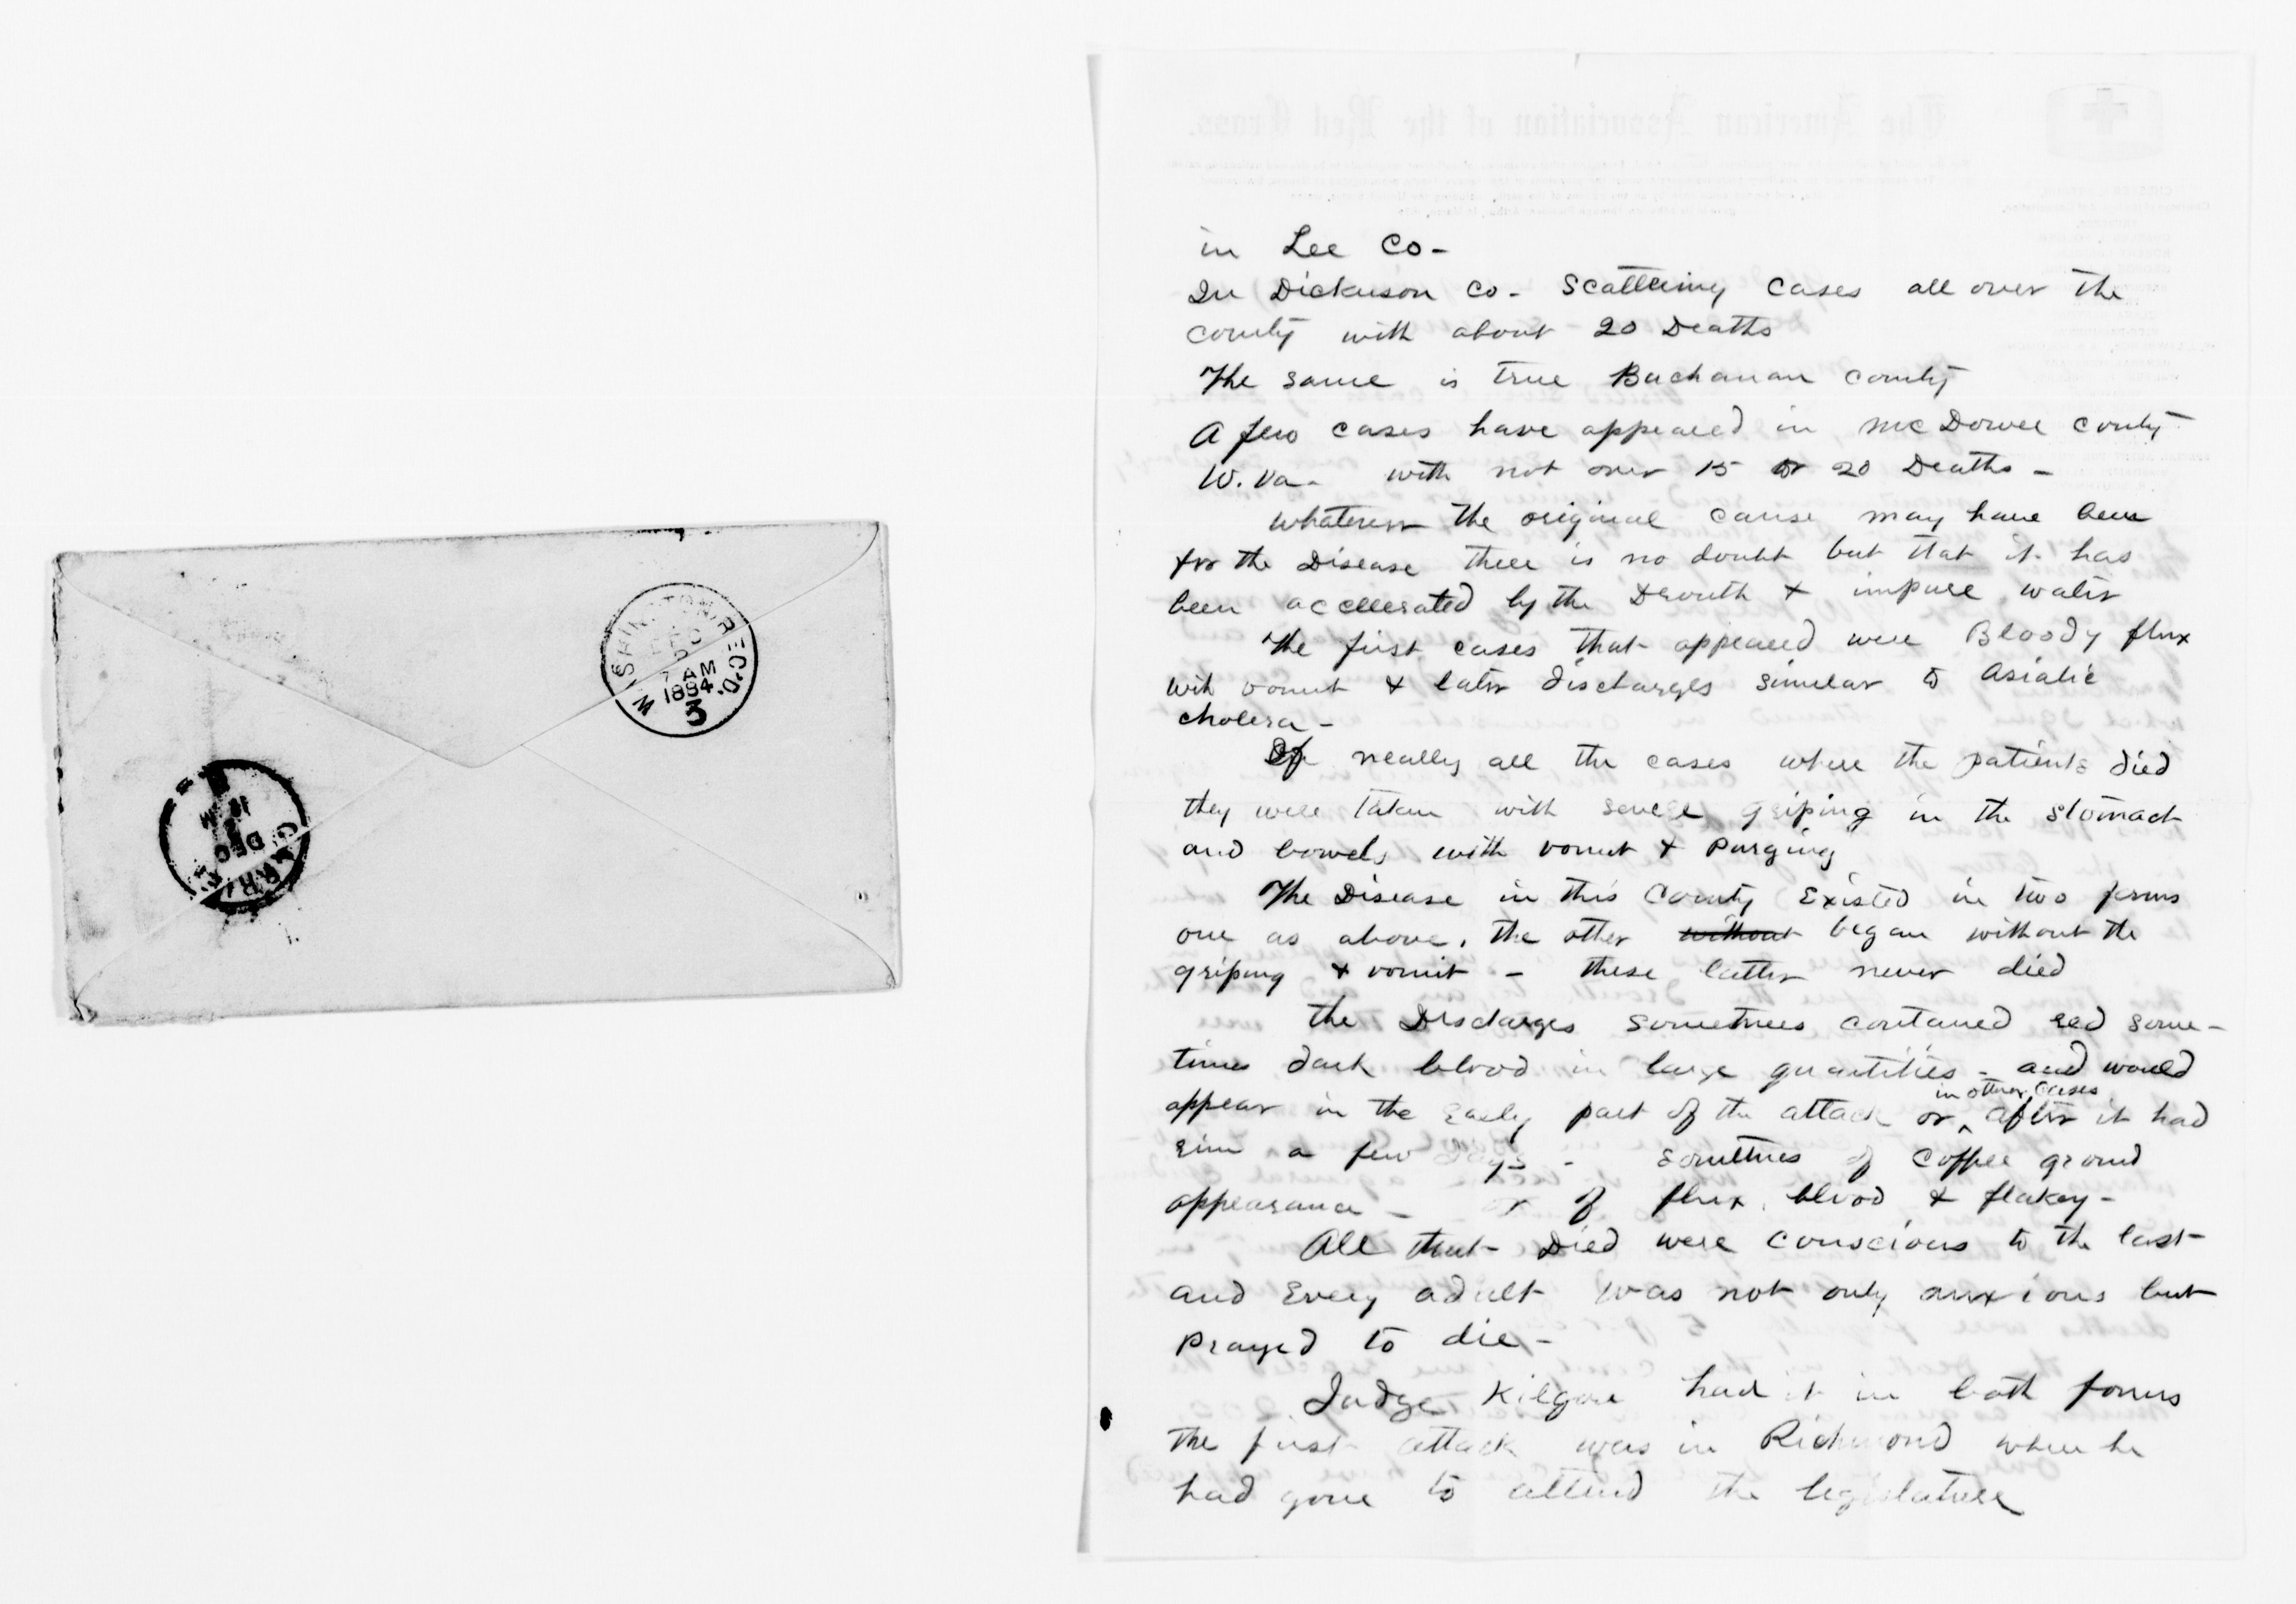 WASHINGTON, REC'D.
7 AM
1884
3
CARRIER
DEC
in Lee Co-
In Dickenson Co- Scattering Cases all over the
County with about 20 Deaths
The same is true Buchanan County
A few cases have appeared in McDowell County
W. Va- with not over 15 or 20 Deaths -
Whatever the original cause may have been
for the Disease there is no doubt but that it has
been accellerated by the Drouth & impure water
The first cases that appeared were Bloody flux
with vomit & later discharges similar to Asiatic
cholera -
Of nearly all the cases where the patients died
they were taken with severe griping in the stomach
and bowels with vomit & Purging
The Disease in this County Existed in two forms
one as above, the other without began without the
griping & vomit - these latter never died
The Discharges sometimes contained red some-
times dark blood in large quantities - and would
in other cases
appear in the Early part of the attack or ^ after it had
run a few days - sometimes of Coffee ground
appearance - or of flux, blood & flakey -
All that Died were conscious to the last
and Every adult was not only anxious but
Prayed to die -
Judge Kilgore had it in both forms
the first attack was in Richmond when he
had gone to attend the legislature
The American Association of the Red Cross.